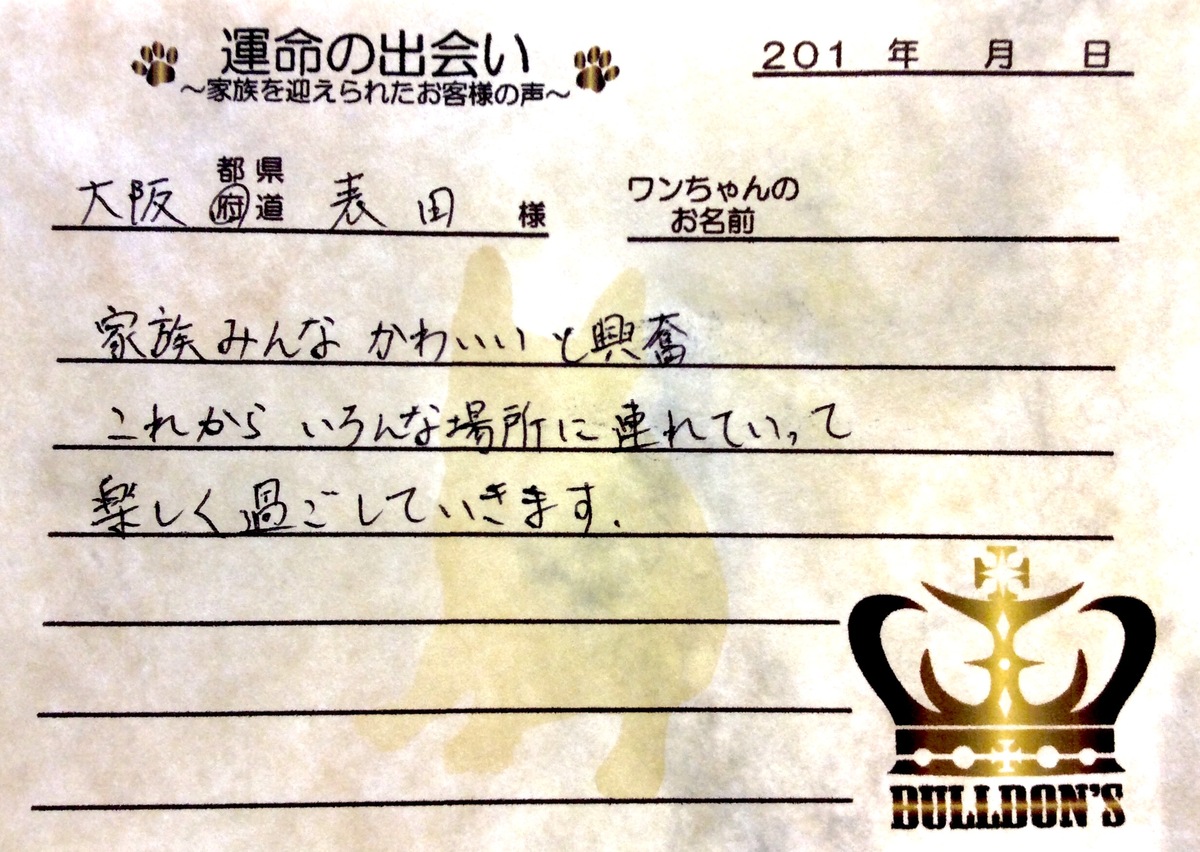 運命の出会い
~家族を迎えられたお客様の声~
201 年 月 日
大阪 都県府道 表田 様
ワンちゃんのお名前
家族みんな かわいい と興奮
これから いろんな場所に連れていって
楽しく過ごしていきます.
BULLDON'S